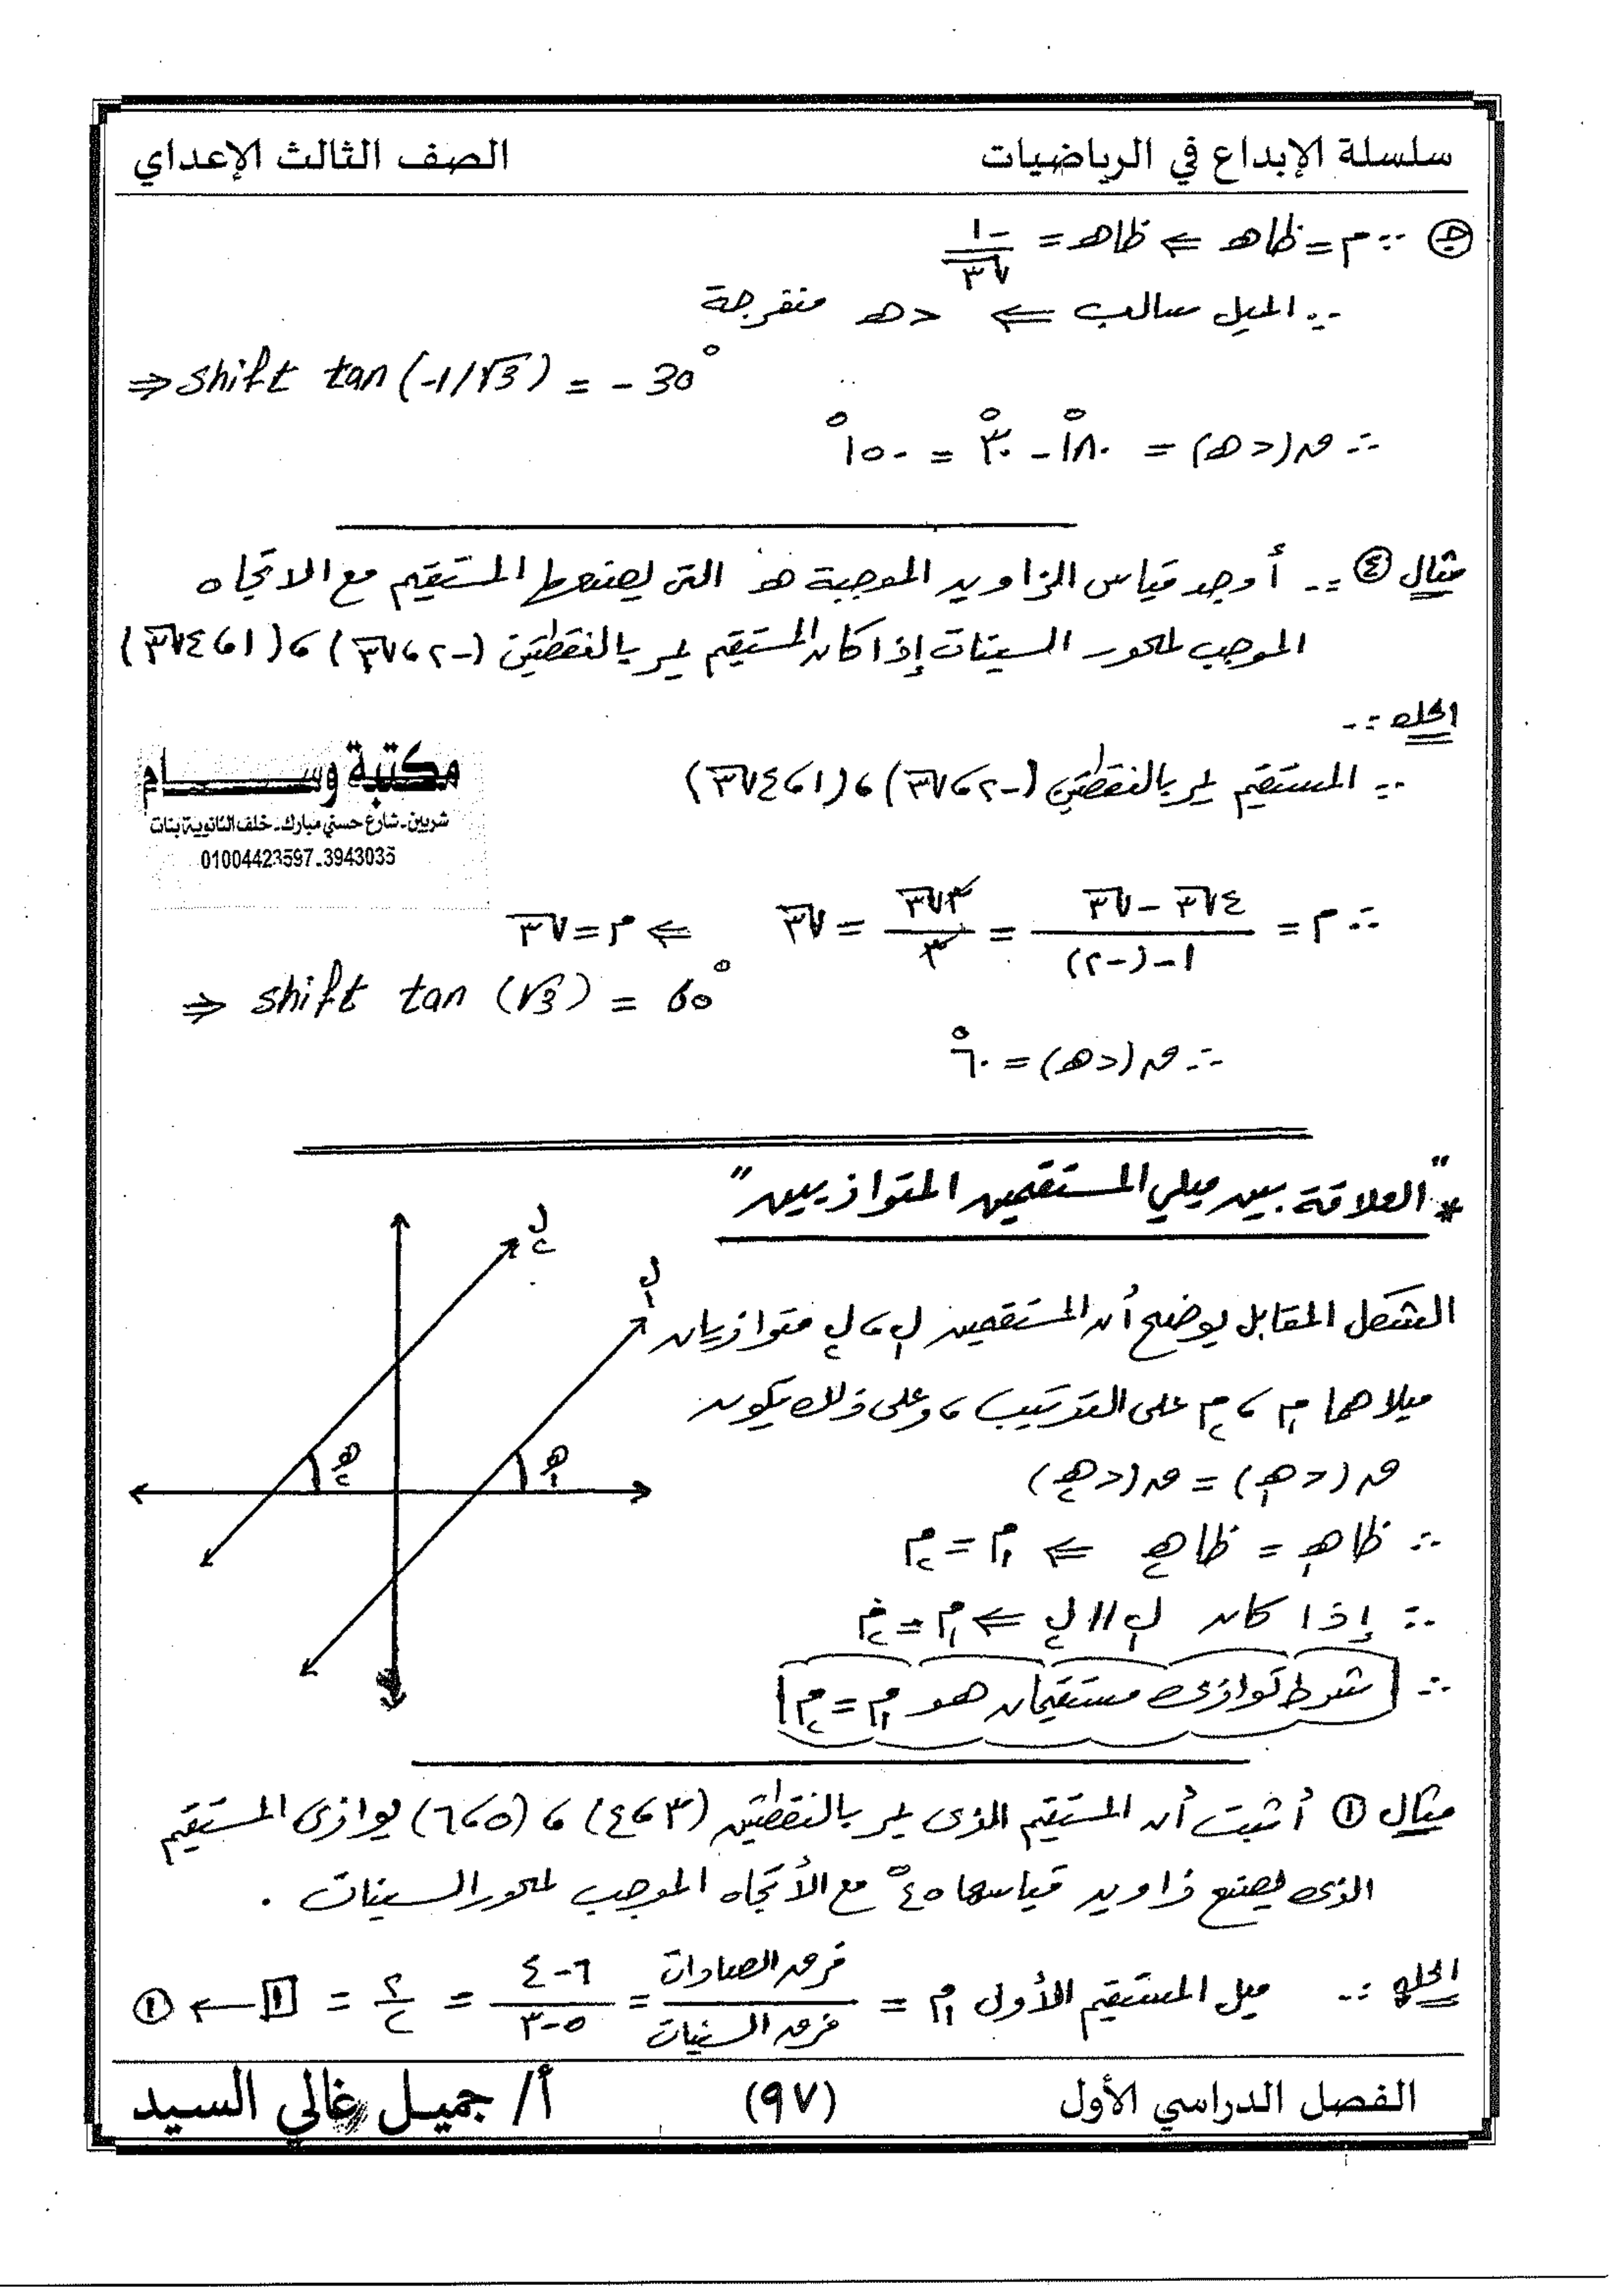 سلسلة الإبداع في الرياضيات
الصف الثالث الإعداي
جـ ∵ م = ظاهـ ⇐ ظاهـ = -١/√٣
∵ الميل سالب ⇐ >هـ منفرجة
⇒ shift tan (-1/√3) = -30°
∴ ق(>هـ) = ١٨٠° - ٣٠° = ١٥٠°
مثال ④ :- أوجد قياس الزاوية الموجبة هـ التى يصنعها المستقيم مع الاتجاه
الموجب لمحور السينات إذا كان المستقيم يمر بالنقطتين (-٢ ، √٣) ، (١ ، ٤√٣)
الحل :-
∵ المستقيم يمر بالنقطتين (-٢ ، √٣) ، (١ ، ٤√٣)
مكتبة وســـــام
شربين - شارع حسني مبارك - خلف الثانوية بنات
01004423597 - 3943035
∴ م = (٤√٣ - √٣)/(١ - (-٢)) = ٣√٣/٣ = √٣ ⇐ م = √٣
⇒ shift tan (√3) = 60°
∴ ق(>هـ) = ٦٠°
* "العلاقة بين ميلي المستقيمين المتوازيين"
ل٢
ل١
هـ٢
هـ١
الشكل المقابل يوضح أن المستقيمين ل١ ، ل٢ متوازيان
ميلاهما م١ ، م٢ على الترتيب ، وعلى ذلك يكون
ق(>هـ١) = ق(>هـ٢)
∴ ظاهـ١ = ظاهـ٢ ⇐ م١ = م٢
∴ إذا كان ل١ // ل٢ ⇐ م١ = م٢
∴ شرط توازى مستقيمان هو م١ = م٢
مثال ① أثبت أن المستقيم الذى يمر بالنقطتين (٣ ، ٤) ، (٥ ، ٦) يوازى المستقيم
الذى يصنع زاوية قياسها ٤٥° مع الأتجاه الموجب لمحور السينات .
الحل :- ميل المستقيم الأول م١ = فرق الصادات/فرق السينات = (٦-٤)/(٥-٣) = ٢/٢ = ١ ← ①
الفصل الدراسي الأول
(٩٧)
أ/ جميل غالي السيد